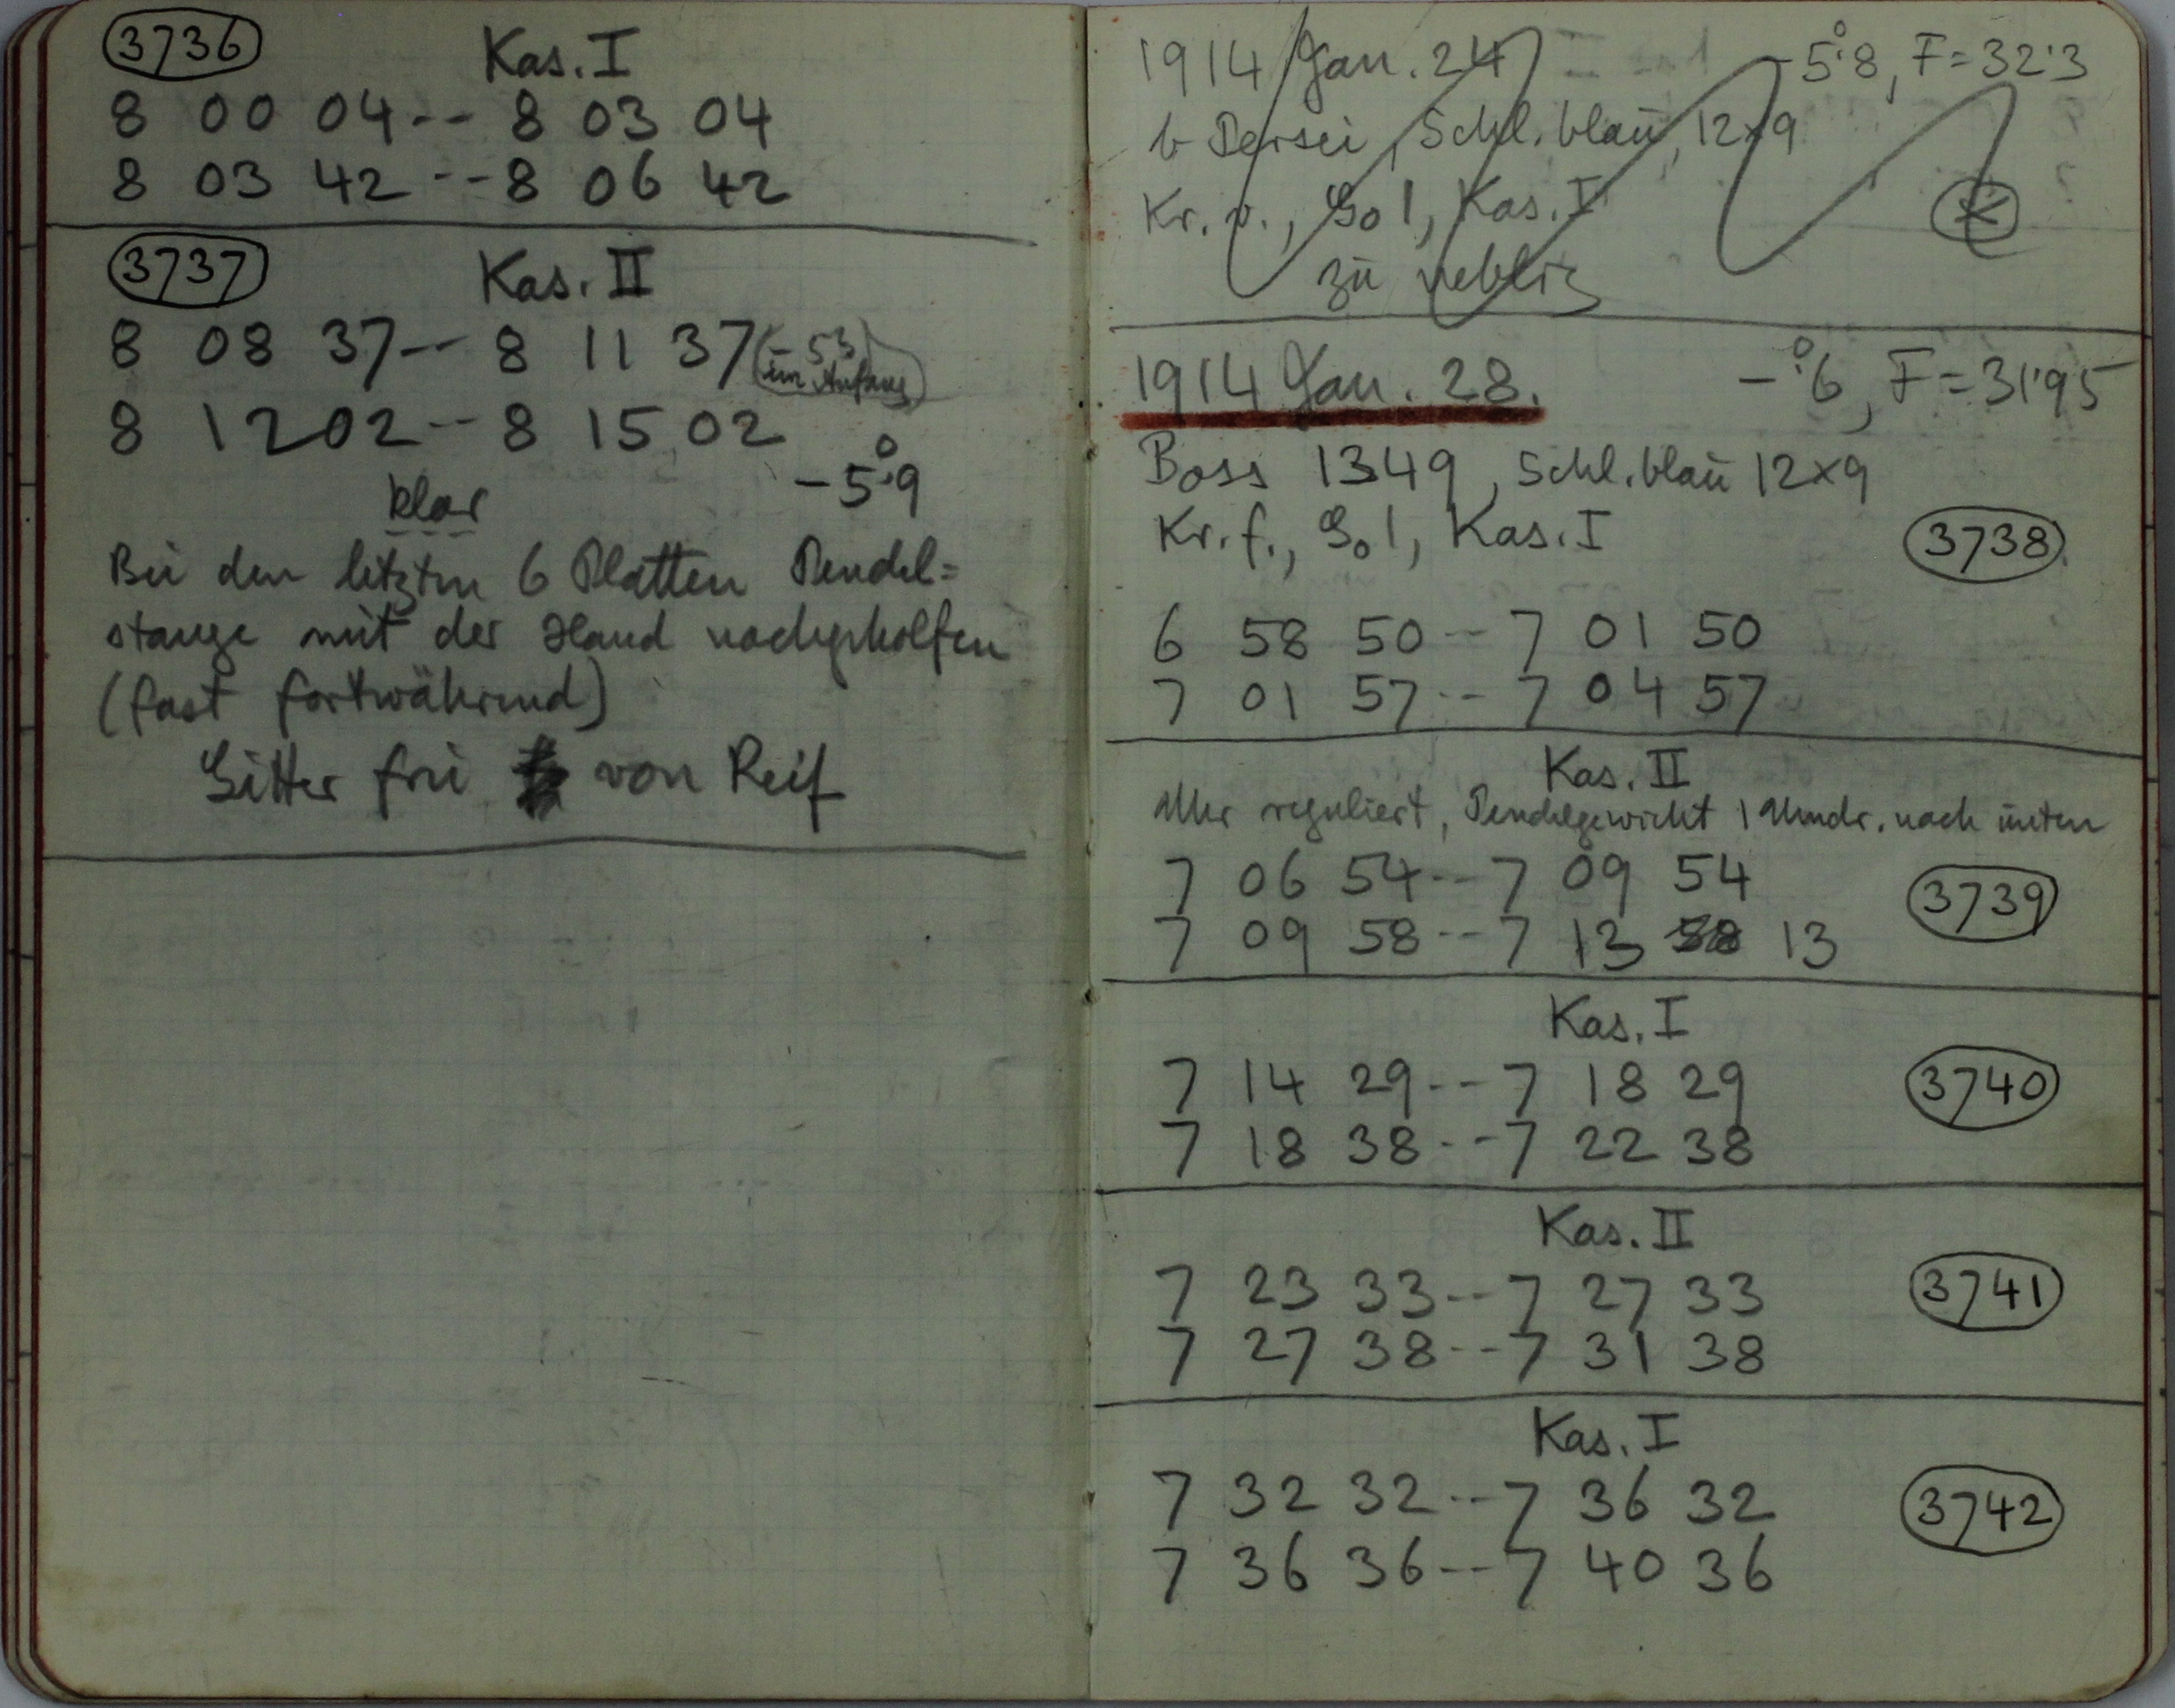 3736 Kas. I
8 00 04 -- 8 03 04
8 03 42 -- 8 06 42
3737 Kas. II
8 08 37 -- 8 11 37 (-53
im Anfang)
8 12 02 -- 8 15 02
-5°.9
klar
Bei den letzten 6 Platten Pendel=
stange mit der Hand nachgeholfen
(fast fortwährend)
Gitter frei von Reif
1914 Jan. 24 -5°.8, F=32.3
b Persei, Schl. blau, 12×9
Kr. v., Go 1, Kas. I
zu neblig
1914 Jan. 28. -°.6, F=31.95
Boss 1349, Schl. blau 12×9
Kr. f., Go 1, Kas. I 3738
6 58 50 -- 7 01 50
7 01 57 -- 7 04 57
Kas. II
Uhr reguliert, Pendelgewicht 1 Umdr. nach unten
7 06 54 -- 7 09 54 3739
7 09 58 -- 7 13 58 13
Kas. I
7 14 29 -- 7 18 29 3740
7 18 38 -- 7 22 38
Kas. II
7 23 33 -- 7 27 33 3741
7 27 38 -- 7 31 38
Kas. I
7 32 32 -- 7 36 32 3742
7 36 36 -- 7 40 36